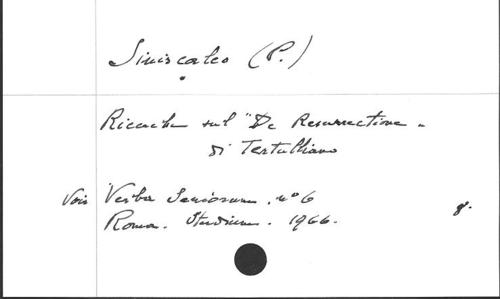 Siniscalco (P.)
Ricerche sul "De Resurrectione"
di Tertulliano
Voir Verba Seniorum. nº 6
Roma. Studium. 1966.